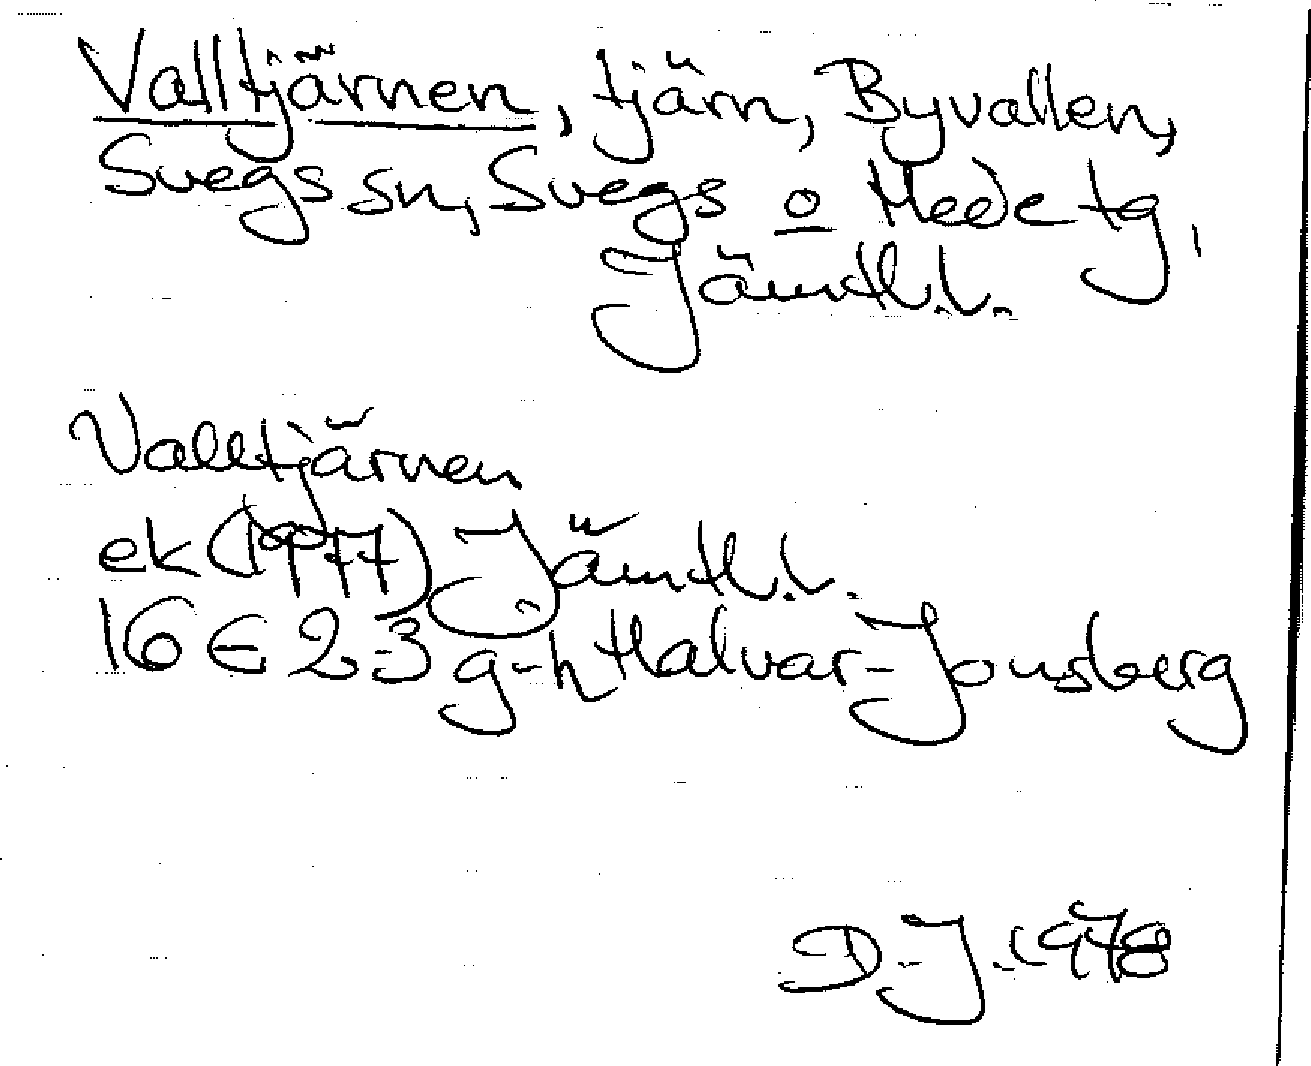 Valltjärnen, tjärn, Byvallen,
Svegs sn, Svegs o Hede tg,
Jämtl.l.
Valltjärnen
ek (1977) Jämtl.l.
16 E 2-3 g-h Halvar-Jonsberg
D.J. 1978